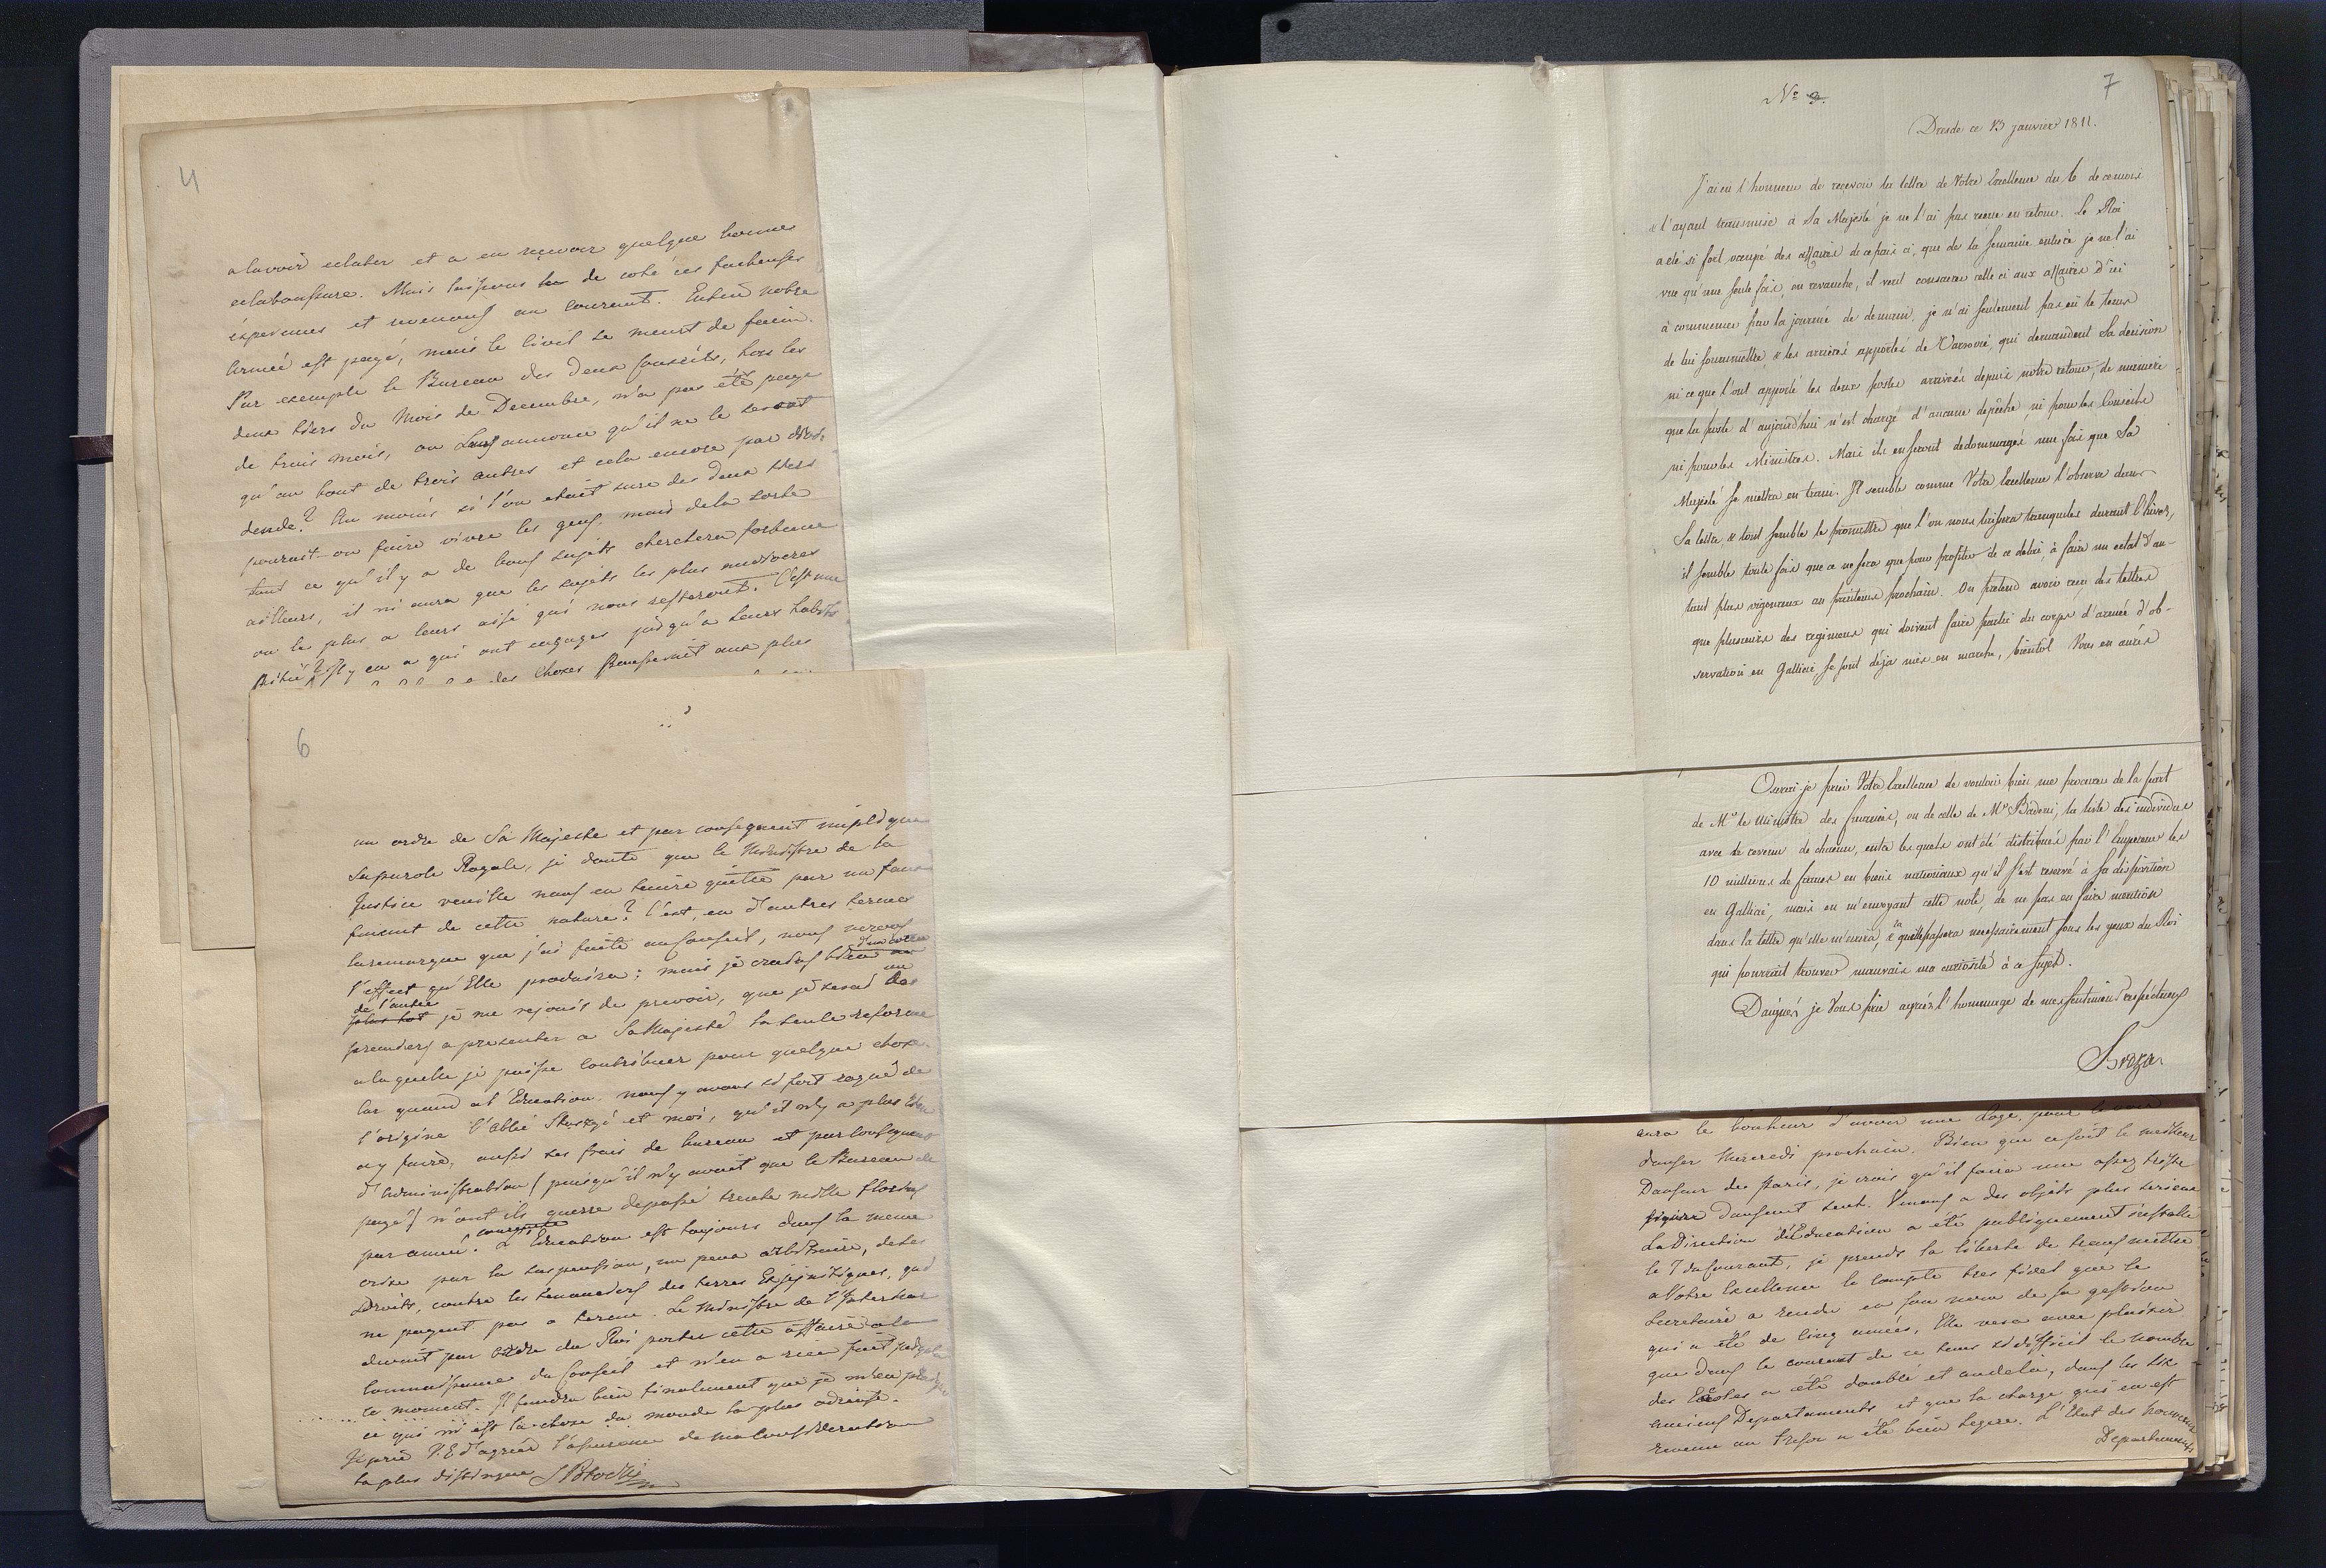 4
a la voir eclater et a en recevoir quelque bonne
eclaboussure. Mais laissons de coté ces facheuses
esperances et revenons au courant. Enfin notre
Armée est payé, mais le Civil se meurt de faim.
Par exemple le Bureau des deux Conseils, hors les
deux tiers du Mois de Decembre, n'a pas été payé
de trois mois, on Leurs annonce qu'il ne le seront
qu'au bout de trois autres et cela encore par
dende? Au moins si l'on etait sure des deux tiers
pourait-on faire vivre les gens, mais de la sorte
tout ce qu'il y a de bons sujets cherchera fortune
ailleurs, il ni aura que les sujets les plus mediocres
ou les plus a leurs aise qui nous resteront. C'est une
pitié! Il y en a qui ont engagés jusqu'a leurs habits
des choses aux plus
6
un ordre de Sa Majesté et par consequent
Sa parole Royale, je doute que le Ministre de la
Justice veuille nous en tenire quitte par un faux
fuiant de cette nature? C'est, en d'autres termes
la remarque que j'ai faite au Conseil, nous verons
l'effect qu'Elle produira: mais je crains bien
de l'autre
plus tot je me rejouis de prevoir, que je serai un des
premiers a presenter a Sa Majesté la seule reforme
a laquelle je puisse contribuer pour quelque chose
Car quand a l'Education, nous y avons si fort rogné de
l'origine l'Abbé et moi, qu'il n'y a plus rien
a y faire, aussi ses frais de bureau et par consequent
d'administration (puisqu'il n'y avait que le Bureau de
payé) n'ont ils guerre depassé trente mille florins
par année. L'Education est toujours dans la meme
crise par la suspension, un peux arbitraire, de ses
Droits, contre les tenanciers des terres Exjesuitiques, qui
ne payent pas a terme. Le Ministre de l'Interieur
devait par ordre du Roi porter cette affaire a la
Connaissance du Conseil et n'en a rien fait jusqu'a
ce moment. Il faudra bien finalement que je m'en
ce qui m'est la chose du monde la plus odieuse.
Je prie V.E. d'agréer l'assurance de ma Consideration
la plus distinguée S Potocki
7
No 3.
Dresde ce 13 janvier 1811.
J'ai eu l'honneur de recevoir la lettre de Votre Excellence du 6 de ce mois
& l'ayant transmise à Sa Majesté je ne l'ai pas reçue en retour. Le Roi
a été si fort occupé des affaires de ce pais ci, que de la semaine entière je ne l'ai
vue qu'une seule fois, en revanche, il veut consacrer celle ci aux affaires d'ici
à commencer par la journée de demain. je n'ai seulement pas eu le tems
de lui soummettre & les arrierés apportés de Varsovie, qui demandent Sa decision
ni ce que l'ont apporté les deux postes arrivées depuis notre retour, de manière
que la poste d'aujourd'hui n'est chargé d'aucune depêche ni pour les Conseils
ni pour les Ministres. Mais ils en seront dedommagés une fois que Sa
Majesté se mettra en train. Il semble comme Votre Excellence l'observe dans
Sa lettre & tout semble le promettre que l'on nous laissera tranquiles durant l'hiver,
il semble toute fois que ce ne sera que pour profiter de ce delai à faire un eclat d'au-
tant plus vigoureux au printems prochain. On pretend avoir reçu des lettres
que plusieurs des regimens qui doivent faire partie du corps d'armée d'ob-
servation en Gallicie, se sont déja mis en marche, bientot Vous en aurés
Oserai-je prier Votre Excellence de vouloir bien me procurer de la part
de Mr le Ministre des finances, ou de celle de Mr Badeni, la liste des individus
avec le revenu de chacun, entre les quels ont été distribués par l'Empereur les
10 millions de francs en biens nationaux qu'il s'est reservé à sa disposition
en Gallicie, mais en m'envoyant cette note, de ne pas en faire mention
dans la lettre qu'elle m'ecrira, & qui passera necessairement sous les yeux du Roi
qui pourrait trouver mauvais ma curiosité à ce sujet.
Daignés je Vous prie agréer l'hommage de mes sentimens respectueux
Breza
aura le bonheur d'avoir une Loge, pour le voir
danser Mercredi prochain. Bien que ce soit le meilleur
Danseur de Paris, je crois qu'il faira une assez triste
figure dansant seul. Venons a des objets plus serieux
La Direction d'Education a été publiquement installé
le 7 du Courant, je prends la liberté de transmettre
a Votre Excellence le Compte tres fidel que le
Secretaire a rendu en son nom de sa gestion
qui a été de cinq années, Elle vera avec plaisir
que dans le courant de ce tems si difficil le nombre
des Ecoles a été doublé et audela, dans les six
anciens Departaments et que la charge qui en est
revenue au Tresor a été bien legere. L'Etat des nouveaux
Departements